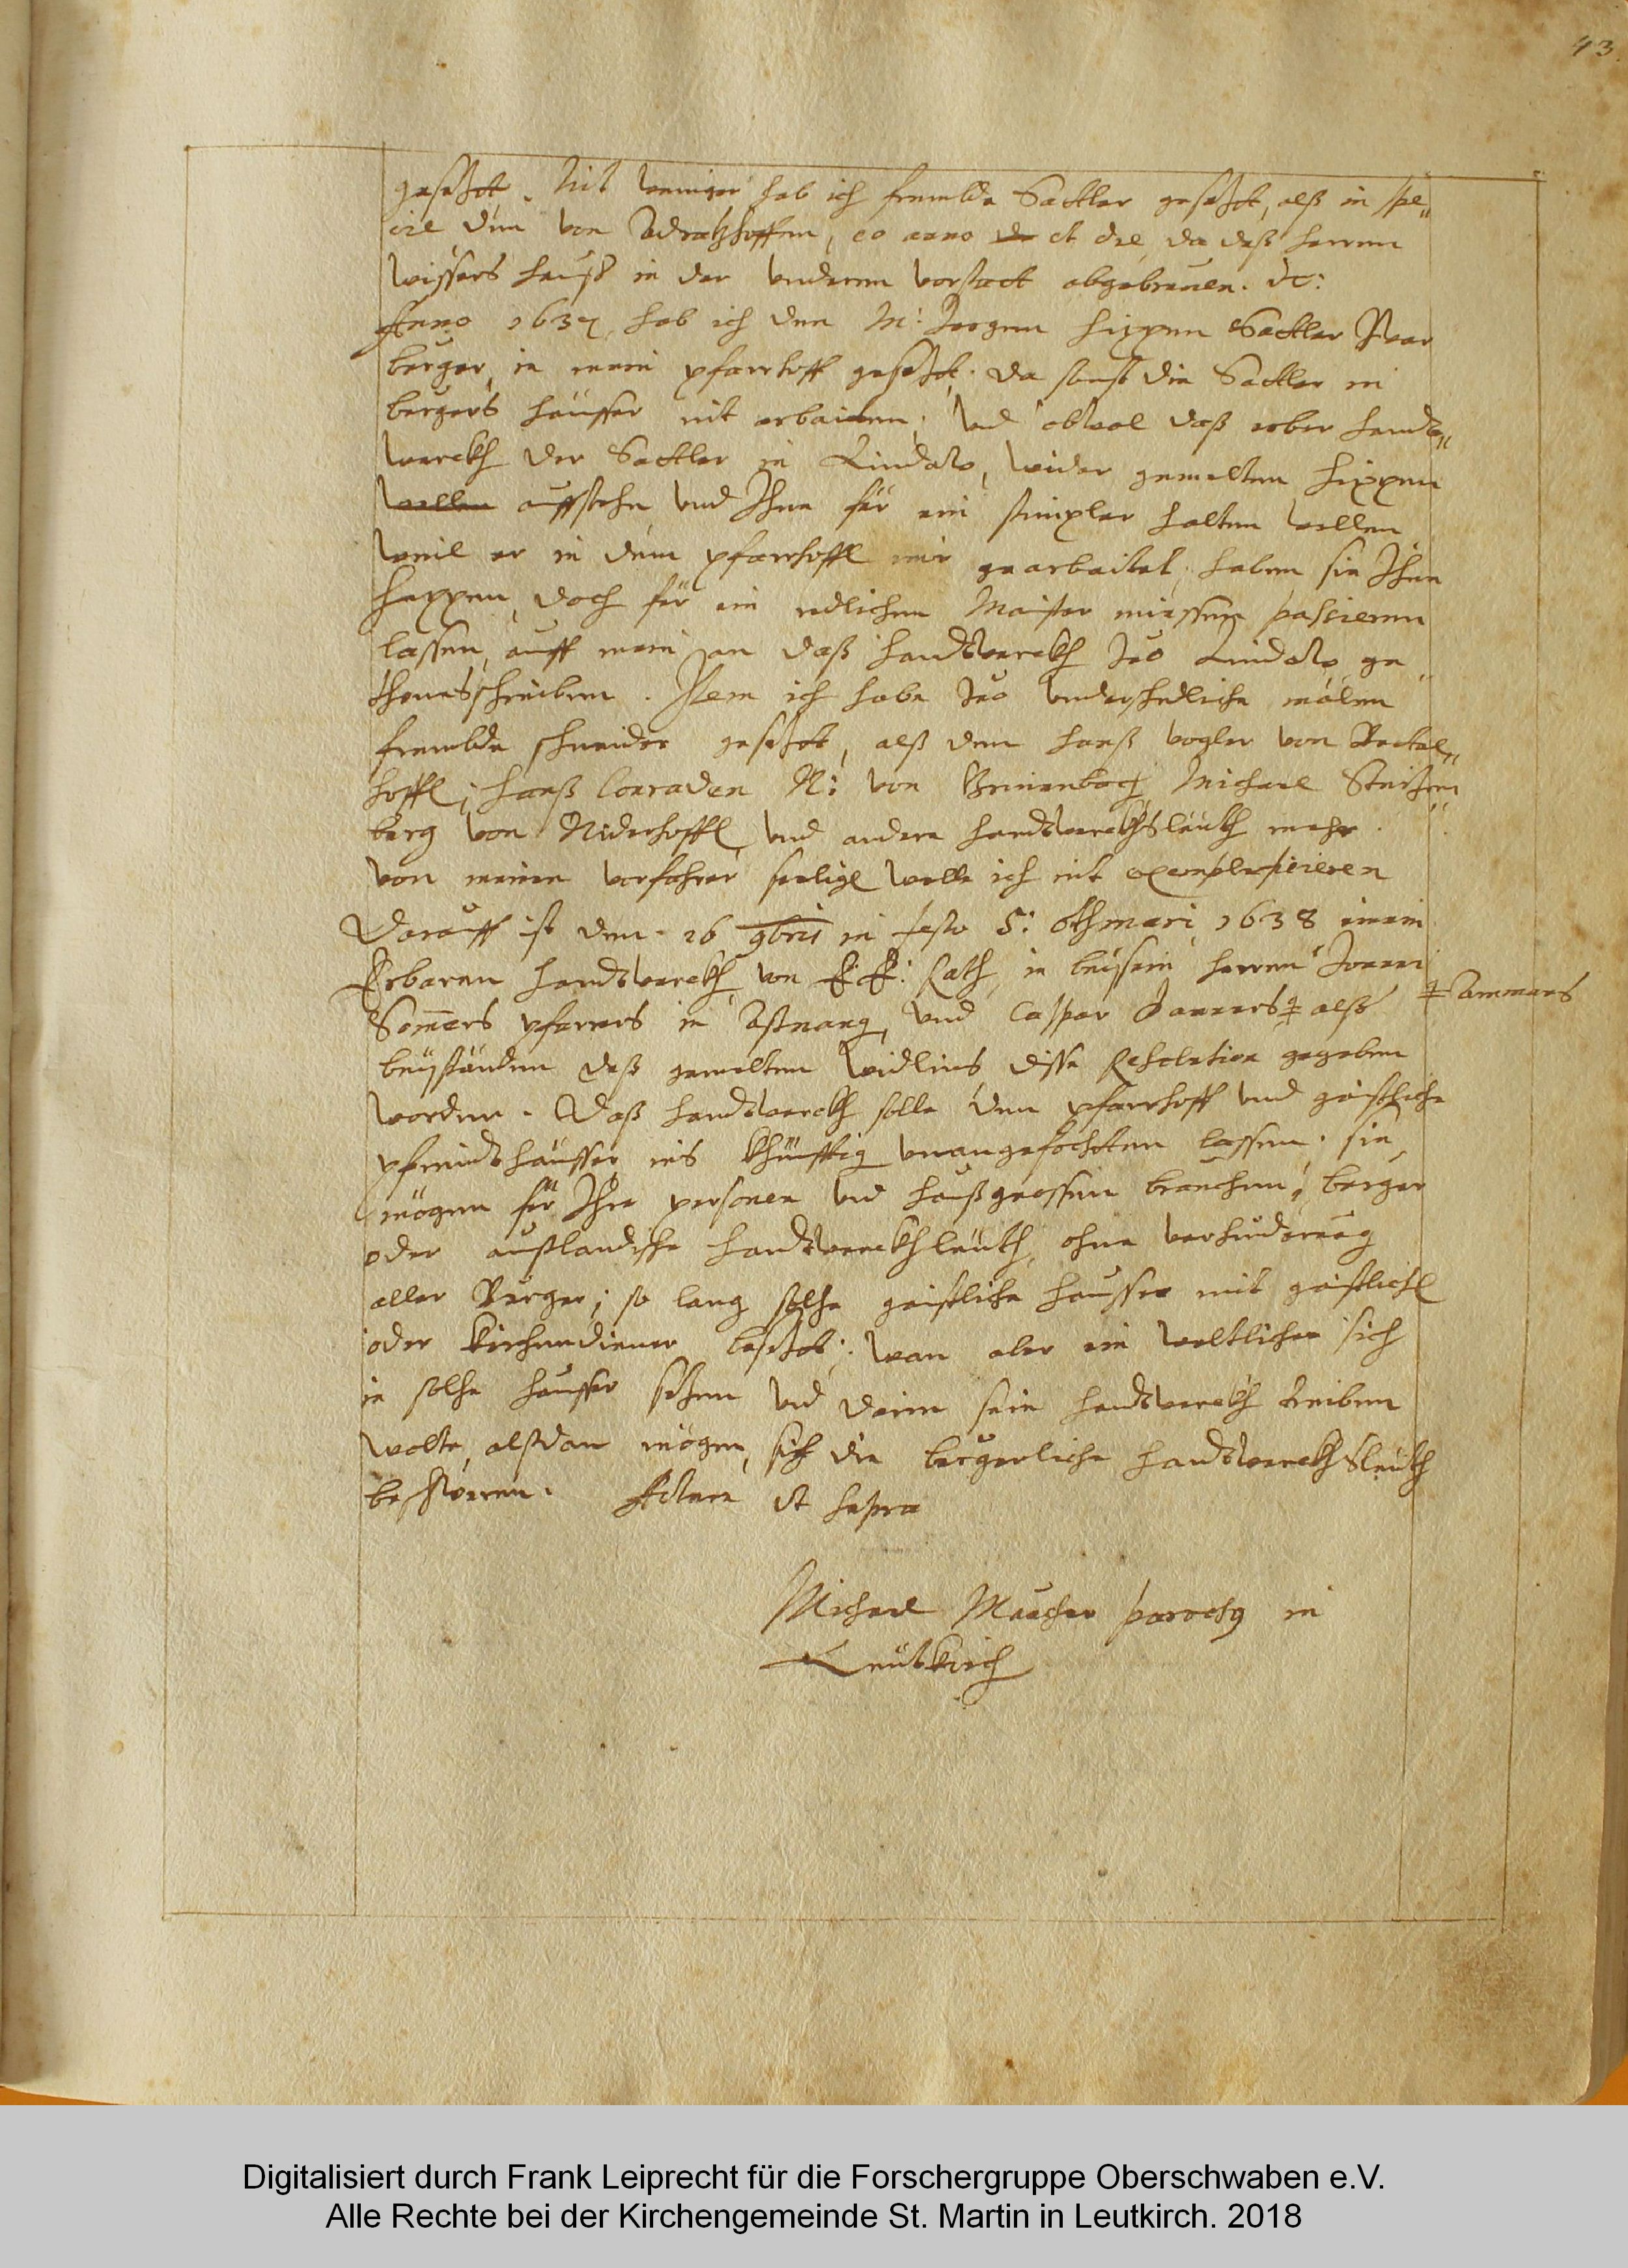 43
gesetzt. Nit weniger hab ich frembde Sattler gesetzt, alß in spe„
cie den von Adratzhoffen, eo anno de et die, da deß herren
wissers hauß in der underen vorstatt abgebrunen. etc:
Anno 1637 hab ich den M: Jergen hippen Sattler
burger, in mein pfarrhoff gesetzt. da sonst die Sattler in
burgers heuser nit arbaiten; und obwol daß erber handt„
werckh der Sattler in Lindaw, wider gemelten hippen
wellen auffstehn und Ihne für ein stimpler halten wellen
weil er in dem pfarrhoffe mir gearbaitet, haben sie Ihne
heppen, doch für ein redlichen Maister miessen passieren
lassen, auff mein an daß handtwerckh zuo Lindaw ge„
thones schreiben. Item ich habe zuo underschidliche mălen
frembde schneider gesetzt, alß den hanß vogler von
hoffe, hanß Conraden N: von Michael
berg von Niderhoffe, und andere handtwerckhsleuth mehr.
von meinen vorfahrer seelige welle ich nit exemplificieren
Darauff ist den 16 9bris in festo S: Othmari 1638 einem
Erbaren handtwerckh von E: E: Rath, in beysein herren Joanni
Somers pfarrers in Astnang, und Caspar ‡ alß
‡ Sammars
beyständen deß gemelten widlins disse Resolution gegeben
worden. Daß handtwerckh solle den pfarrhoff und gaistliche
pfreindthäusser ins khünfftig unangefochten lassen. sie
mögen für Ihre personen und haußgnossen brauchen, burger
oder außlandische handtwerckhleuth, ohne verhinderung
aller Burger; so lang solche gaistliche heusser mit gaistliche
oder kirchendiener besetzt; wan aber ein weltlicher sich
in solche heusser setzen und darin sein handtwerckh treiben
wolte, alßdan mögen sich die burgerliche handtwerckhsleuth
beschweren. Actum ut supra
Michael Maucher parochus in
Leutkirch
Digitalisiert durch Frank Leiprecht für die Forschergruppe Oberschwaben e.V.
Alle Rechte bei der Kirchengemeinde St. Martin in Leutkirch. 2018